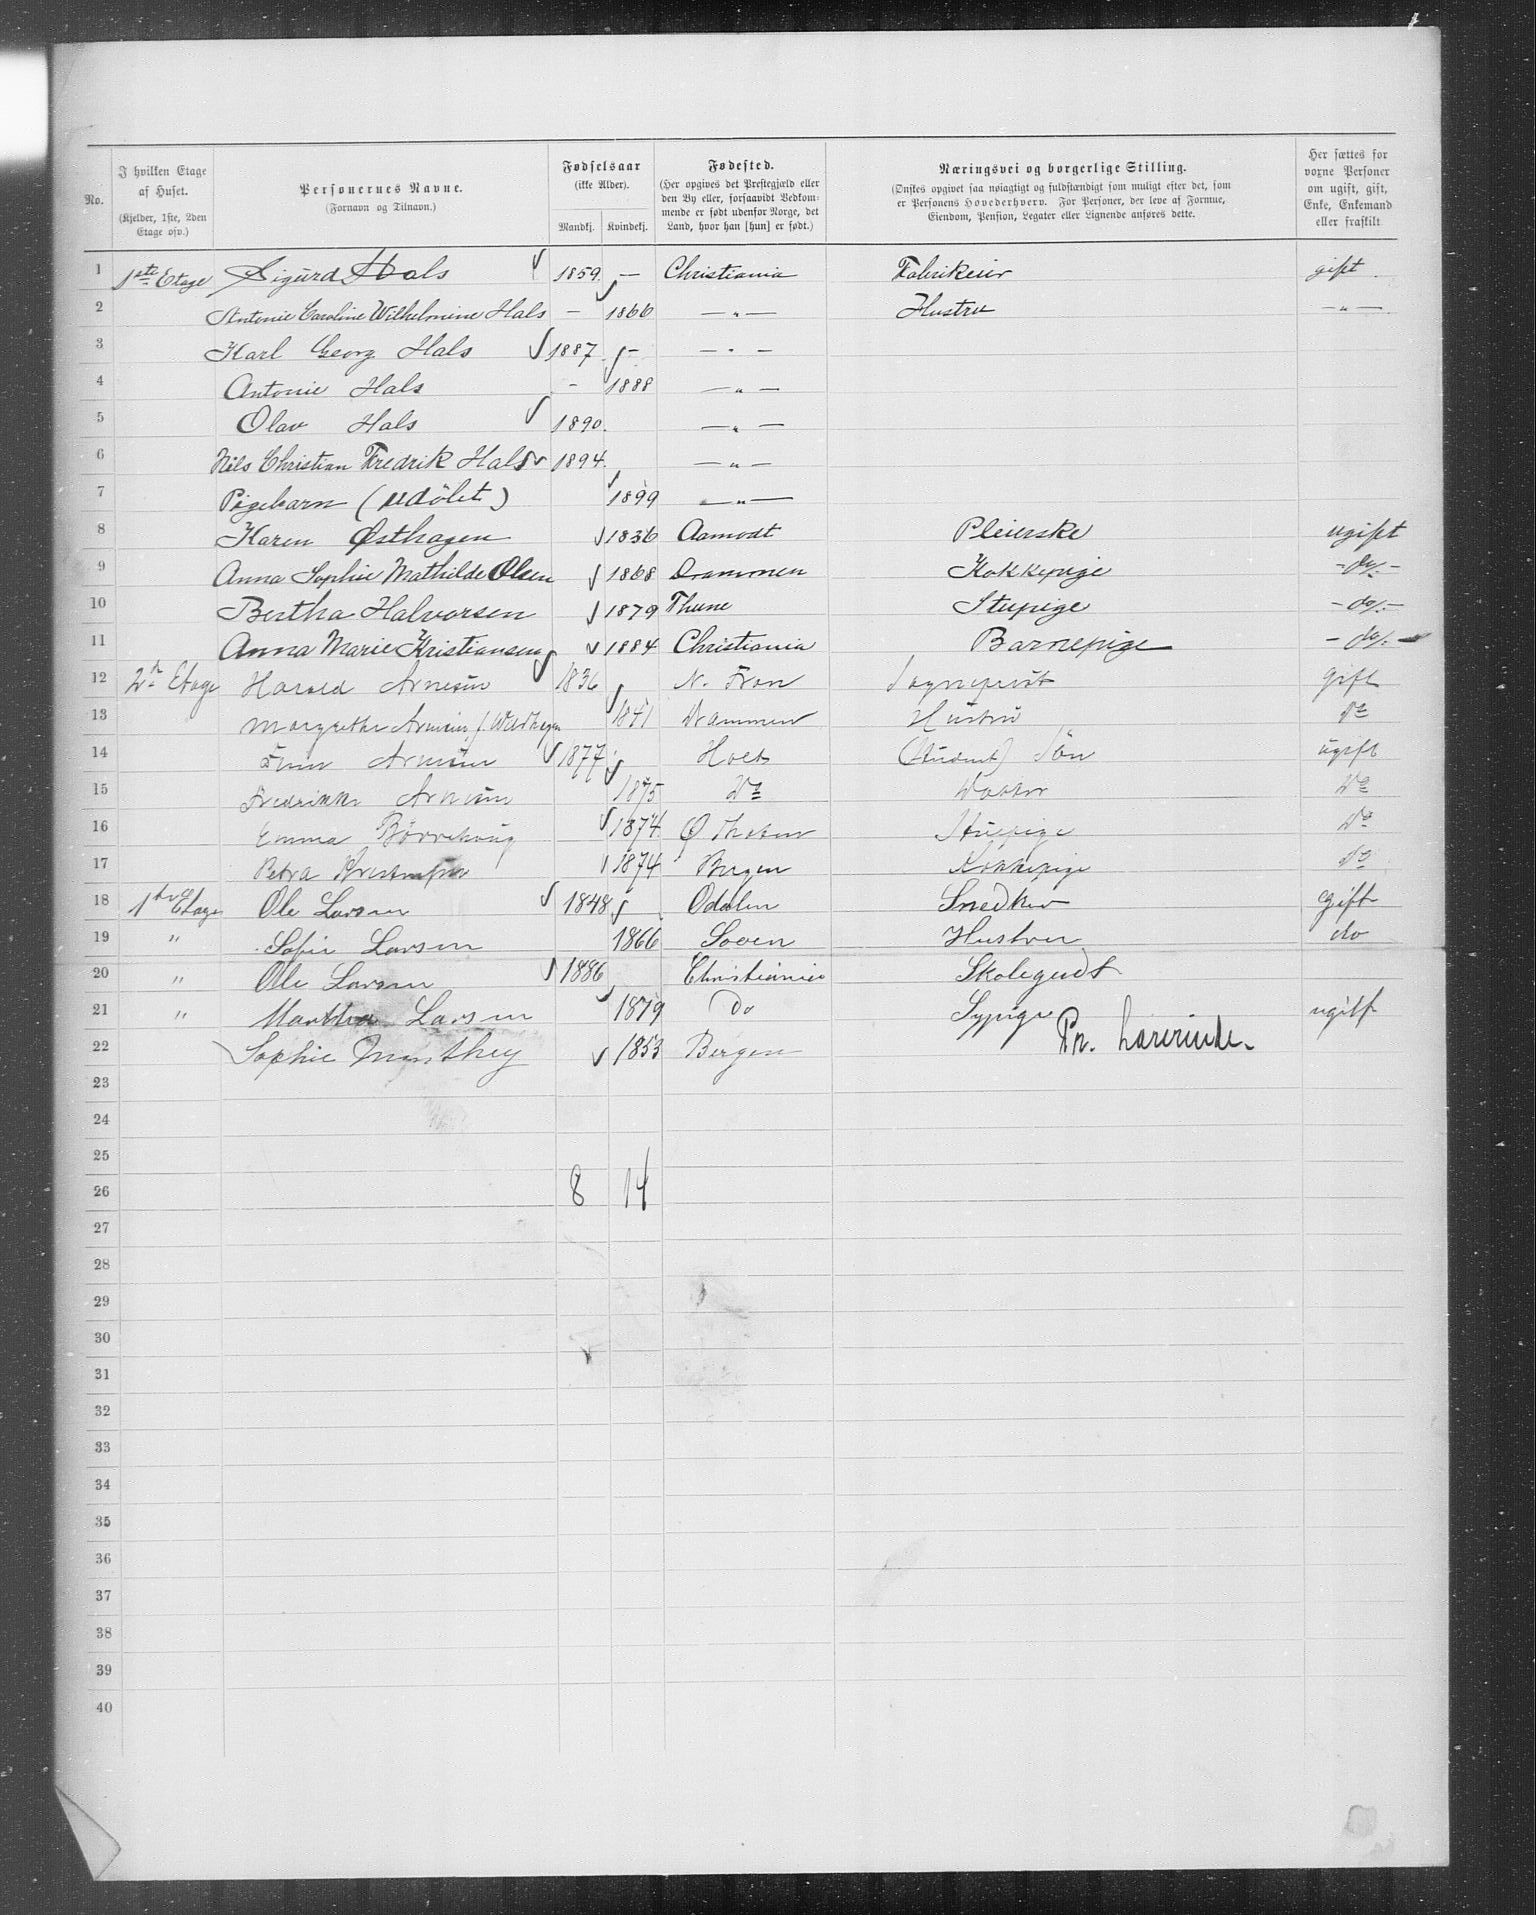 No. | I hvilken Etage af Huset. (Kjelder, 1ste, 2den Etage osv.) | Personernes Navne. (Fornavn og Tilnavn.) | Fødselsaar (ikke Alder). Mandkj. | Kvindekj. | Fødested. (Her opgives det Prestegjæld eller den By eller, forsaavidt Vedkommende er født udenfor Norge, det Land, hvor han [hun] er født.) | Næringsvei og borgerlige Stilling. (Ønskes opgivet saa nøiagtigt og fuldstændigt som muligt efter det, som er Personens Hovederhverv. For Personer, der leve af Formue, Eiendom, Pension, Legater eller Lignende anføres dette. | Her sættes for vorne Personer om ugift, gift, Enke, Enkemand eller fraskilt
1 1ste Etage Sigurd Hals 1859. — Christiania Fabrikeier gift
2 Antonie Caroline Wilhelmine Hals — 1866 — " — Hustru — " —
3 Karl Georg Hals 1887 — — " —
4 Antonie Hals — 1888 — " —
5 Olav Hals 1890. — " —
6 Nils Christian Fredrik Hals 1894. — " —
7 Pigebarn (udöbt) 1899 — " —
8 Karen Østhagen 1836 Aamodt Pleierske ugift
9 Anna Sophie Mathilde Olsen 1868 Drammen Kokkepige - do/. -
10 Bertha Halvorsen 1879 Thune Stupige - do/. -
11 Anna Marie Kristiansen 1884 Christiania Barnepige - do/. -
12 2n Etage Harald Arnesen 1836 N. Fron Sogneprest gift
13 Margrethe Arnesen, f. 1841 Drammen Hustru Do
14 Arnesen 1877 Holt (Student) Søn ugift
15 Fredrikke Arnesen 1875 Do Datter Do
16 Emma 1874 Ø Thoten Stuepige Do
17 Petra 1874 Bergen Kokkepige Do
18 1ste Etage Ole Larsen 1848 Odalen Snedker gift
19 " Sofie Larsen 1866 Hustru do
20 " Ole Larsen 1886 Christiania Skolegudt
21 " Martha Larsen 1879 Do Sypige ugift
22 Sophie Manthey 1853 Bergen Pr. Lærerinde.
23
24
25
26 8 14
27
28
29
30
31
32
33
34
35
36
37
38
39
40